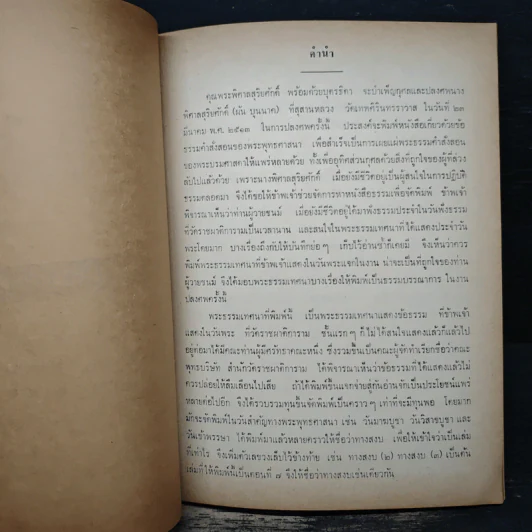 คำนำ
คุณพระพิศาลสุริยศักดิ์ พร้อมด้วยบุตรธิดา จะบำเพ็ญกุศลและปลงศพนาง
พิศาลสุริยศักดิ์ (มัน บุนนาค) ที่สุสานหลวง วัดเทพศิรินทราวาส ในวันที่ ๒๓
มีนาคม พ.ศ. ๒๕๑๓ ในการปลงศพครั้งนี้ ประสงค์จะพิมพ์หนังสือเกี่ยวด้วยข้อ
ธรรมคำสั่งสอนของพระพุทธศาสนา เพื่อสำเร็จเป็นการเผยแผ่พระธรรมคำสั่งสอน
ของพระบรมศาสดาให้แพร่หลายด้วย ทั้งเพื่ออุทิศส่วนกุศลด้วยสิ่งที่ถูกใจของผู้ที่ล่วง
ลับไปแล้วด้วย เพราะนางพิศาลสุริยศักดิ์ เมื่อยังมีชีวิตอยู่เป็นผู้สนใจในการปฏิบัติ
ธรรมตลอดมา จึงได้ขอให้ข้าพเจ้าช่วยจัดการหาหนังสือธรรมเพื่อจัดพิมพ์ ข้าพเจ้า
พิจารณาเห็นว่าท่านผู้วายชนม์ เมื่อยังมีชีวิตอยู่ได้มาฟังธรรมประจำในวันฟังธรรม
ที่วัดราชผาติการามเป็นเวลานาน และสนใจในพระธรรมเทศนาที่ได้แสดงประจำวัน
พระโดยมาก บางเรื่องถึงกับให้บันทึกย่อ ๆ เก็บไว้อ่านซ้ำก็เคยมี จึงเห็นว่าควร
พิมพ์พระธรรมเทศนาที่ข้าพเจ้าแสดงในวันพระแจกในงาน น่าจะเป็นที่ถูกใจของท่าน
ผู้วายชนม์ จึงได้มอบพระธรรมเทศนาบางเรื่องให้พิมพ์เป็นธรรมบรรณาการ ในงาน
ปลงศพครั้งนี้
พระธรรมเทศนาที่พิมพ์นี้ เป็นพระธรรมเทศนาแสดงข้อธรรม ที่ข้าพเจ้า
แสดงในวันพระ ที่วัดราชผาติการาม ชั้นแรก ๆ ก็ไม่ได้สนใจแสดงแล้วก็แล้วไป
อยู่ต่อมาได้มีคณะท่านผู้มีศรัทธาคณะหนึ่ง ซึ่งรวมขึ้นเป็นคณะผู้จัดทำเรียกชื่อว่าคณะ
พุทธบริษัท สำนักวัดราชผาติการาม ได้พิจารณาเห็นว่าข้อธรรมที่ได้แสดงแล้วไม่
ควรปล่อยให้ลืมเลือนไปเสีย ถ้าได้พิมพ์ขึ้นแจกจ่ายสู่กันอ่านจักเป็นประโยชน์แพร่
หลายต่อไปอีก จึงได้รวบรวมทุนขึ้นจัดพิมพ์เป็นคราว ๆ เท่าที่จะมีทุนพอ โดยมาก
มักจะจัดพิมพ์ในวันสำคัญทางพระพุทธศาสนา เช่น วันมาฆบูชา วันวิสาขบูชา และ
วันเข้าพรรษา ได้พิมพ์มาแล้วหลายคราวให้ชื่อว่าทางสงบ เพื่อให้เข้าใจว่าเป็นเล่ม
ที่เท่าไร จึงเพิ่มตัวเลขวงเล็บไว้ข้างท้าย เช่น ทางสงบ (๒) ทางสงบ (๓) เป็นต้น
เล่มที่ให้พิมพ์นี้เป็นตอนที่ ๗ จึงให้ชื่อว่าทางสงบเช่นเดียวกัน